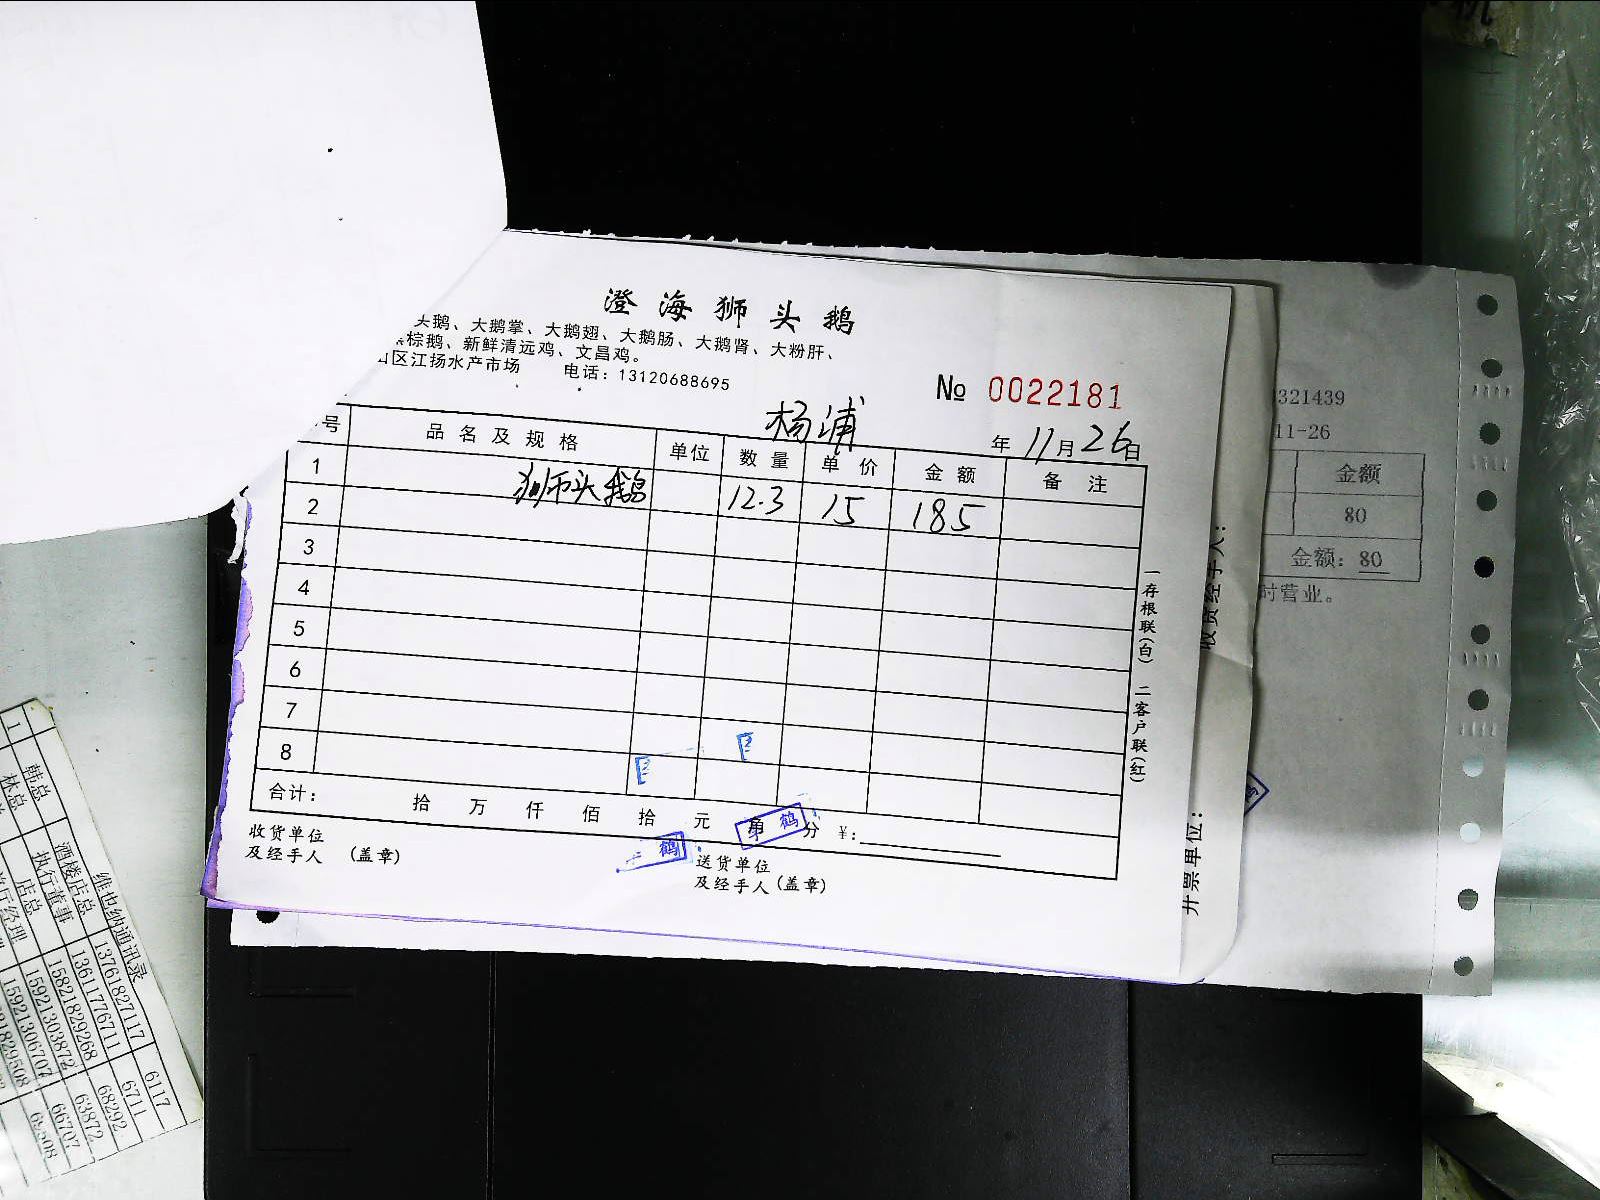 澄海狮头鹅
头鹅、大鹅掌、大鹅翅、大鹅肠、大鹅肾、大粉肝、
棕鹅、新鲜清远鸡、文昌鸡。
区江扬水产市场 电话：13120688695
№ 0022181
杨浦 年 11月26日
号 品名及规格 单位 数量 单价 金额 备注
1 狮头鹅 12.3 15 185
2
3
4
5
6
7
8
合计： 拾 万 仟 佰 拾 元 角 分 ¥：
收货单位
及经手人 （盖章）
送货单位
及经手人（盖章）
鹤
鹤
一存根联（白） 二客户联（红）
收货经手人：
开票单位：
321439
11-26
金额
80
金额：80
时营业。
维也纳通讯录
1 韩总 酒楼店总 13761827117 6117
林总 执行董事 13611776711 6711
店总 15821829268 68292
15921303872 63872
15921306707 66707
69508